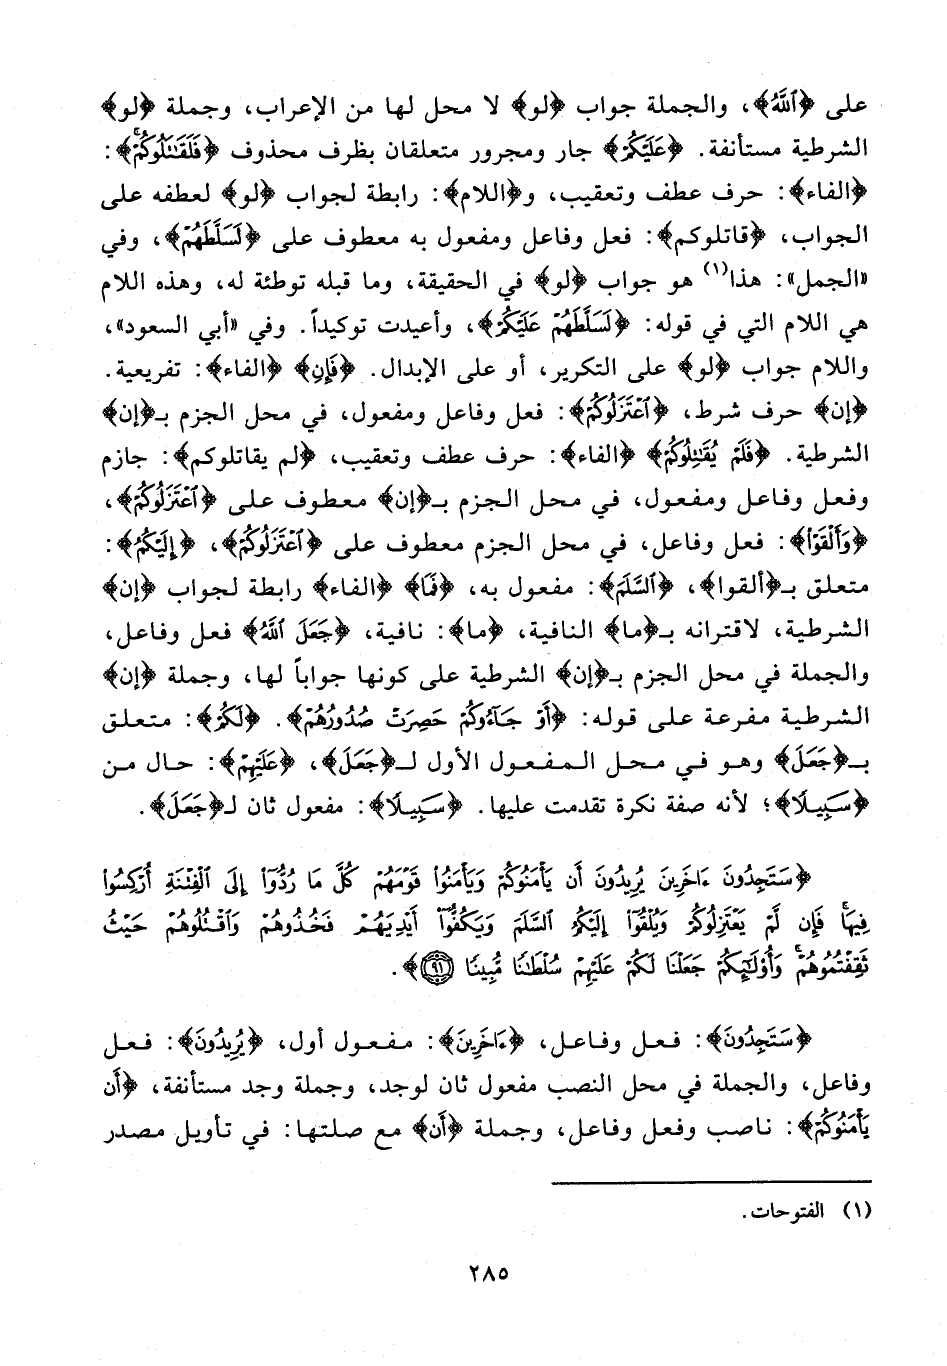 على ﴿اللَّهُ﴾، والجملة جواب ﴿لو﴾ لا محل لها من الإعراب، وجملة ﴿لو﴾
الشرطية مستأنفة. ﴿عَلَيْكُمْ﴾ جار ومجرور متعلقان بظرف محذوف ﴿فَلَقَـٰتَلُوكُمْ﴾:
﴿الفاء﴾: حرف عطف وتعقيب، و﴿اللام﴾: رابطة لجواب ﴿لو﴾ لعطفه على
الجواب، ﴿قاتلوكم﴾: فعل وفاعل ومفعول به معطوف على ﴿لَسَلَّطَهُمْ﴾، وفي
«الجمل»: هذا(١) هو جواب ﴿لو﴾ في الحقيقة، وما قبله توطئة له، وهذه اللام
هي اللام التي في قوله: ﴿لَسَلَّطَهُمْ عَلَيْكُمْ﴾، وأعيدت توكيداً. وفي «أبي السعود»،
واللام جواب ﴿لو﴾ على التكرير، أو على الإبدال. ﴿فَإِنِ﴾ ﴿الفاء﴾: تفريعية.
﴿إن﴾ حرف شرط، ﴿ٱعْتَزَلُوكُمْ﴾: فعل وفاعل ومفعول، في محل الجزم بـ﴿إن﴾
الشرطية. ﴿فَلَمْ يُقَـٰتِلُوكُمْ﴾ ﴿الفاء﴾: حرف عطف وتعقيب، ﴿لم يقاتلوكم﴾: جازم
وفعل وفاعل ومفعول، في محل الجزم بـ﴿إن﴾ معطوف على ﴿ٱعْتَزَلُوكُمْ﴾،
﴿وَأَلْقَوْا۟﴾: فعل وفاعل، في محل الجزم معطوف على ﴿ٱعْتَزَلُوكُمْ﴾، ﴿إِلَيْكُمُ﴾:
متعلق بـ﴿ألقوا﴾، ﴿ٱلسَّلَمَ﴾: مفعول به، ﴿فَمَا﴾ ﴿الفاء﴾ رابطة لجواب ﴿إن﴾
الشرطية، لاقترانه بـ﴿ما﴾ النافية، ﴿ما﴾: نافية، ﴿جَعَلَ ٱللَّهُ﴾ فعل وفاعل،
والجملة في محل الجزم بـ﴿إن﴾ الشرطية على كونها جواباً لها، وجملة ﴿إن﴾
الشرطية مفرعة على قوله: ﴿أَوْ جَآءُوكُمْ حَصِرَتْ صُدُورُهُمْ﴾. ﴿لَكُمْ﴾: متعلق
بـ﴿جَعَلَ﴾ وهو في محل المفعول الأول لـ﴿جَعَلَ﴾، ﴿عَلَيْهِمْ﴾: حال من
﴿سَبِيلًا﴾؛ لأنه صفة نكرة تقدمت عليها. ﴿سَبِيلًا﴾: مفعول ثان لـ﴿جَعَلَ﴾.
﴿سَتَجِدُونَ ءَاخَرِينَ يُرِيدُونَ أَن يَأْمَنُوكُمْ وَيَأْمَنُوا۟ قَوْمَهُمْ كُلَّ مَا رُدُّوٓا۟ إِلَى ٱلْفِتْنَةِ أُرْكِسُوا۟
فِيهَا ۚ فَإِن لَّمْ يَعْتَزِلُوكُمْ وَيُلْقُوٓا۟ إِلَيْكُمُ ٱلسَّلَمَ وَيَكُفُّوٓا۟ أَيْدِيَهُمْ فَخُذُوهُمْ وَٱقْتُلُوهُمْ حَيْثُ
ثَقِفْتُمُوهُمْ ۚ وَأُو۟لَـٰٓئِكُمْ جَعَلْنَا لَكُمْ عَلَيْهِمْ سُلْطَـٰنًا مُّبِينًا ۝٩١﴾.
﴿سَتَجِدُونَ﴾: فعل وفاعل، ﴿ءَاخَرِينَ﴾: مفعول أول، ﴿يُرِيدُونَ﴾: فعل
وفاعل، والجملة في محل النصب مفعول ثان لوجد، وجملة وجد مستأنفة، ﴿أَن
يَأْمَنُوكُمْ﴾: ناصب وفعل وفاعل، وجملة ﴿أَن﴾ مع صلتها: في تأويل مصدر
(١) الفتوحات.
٢٨٥